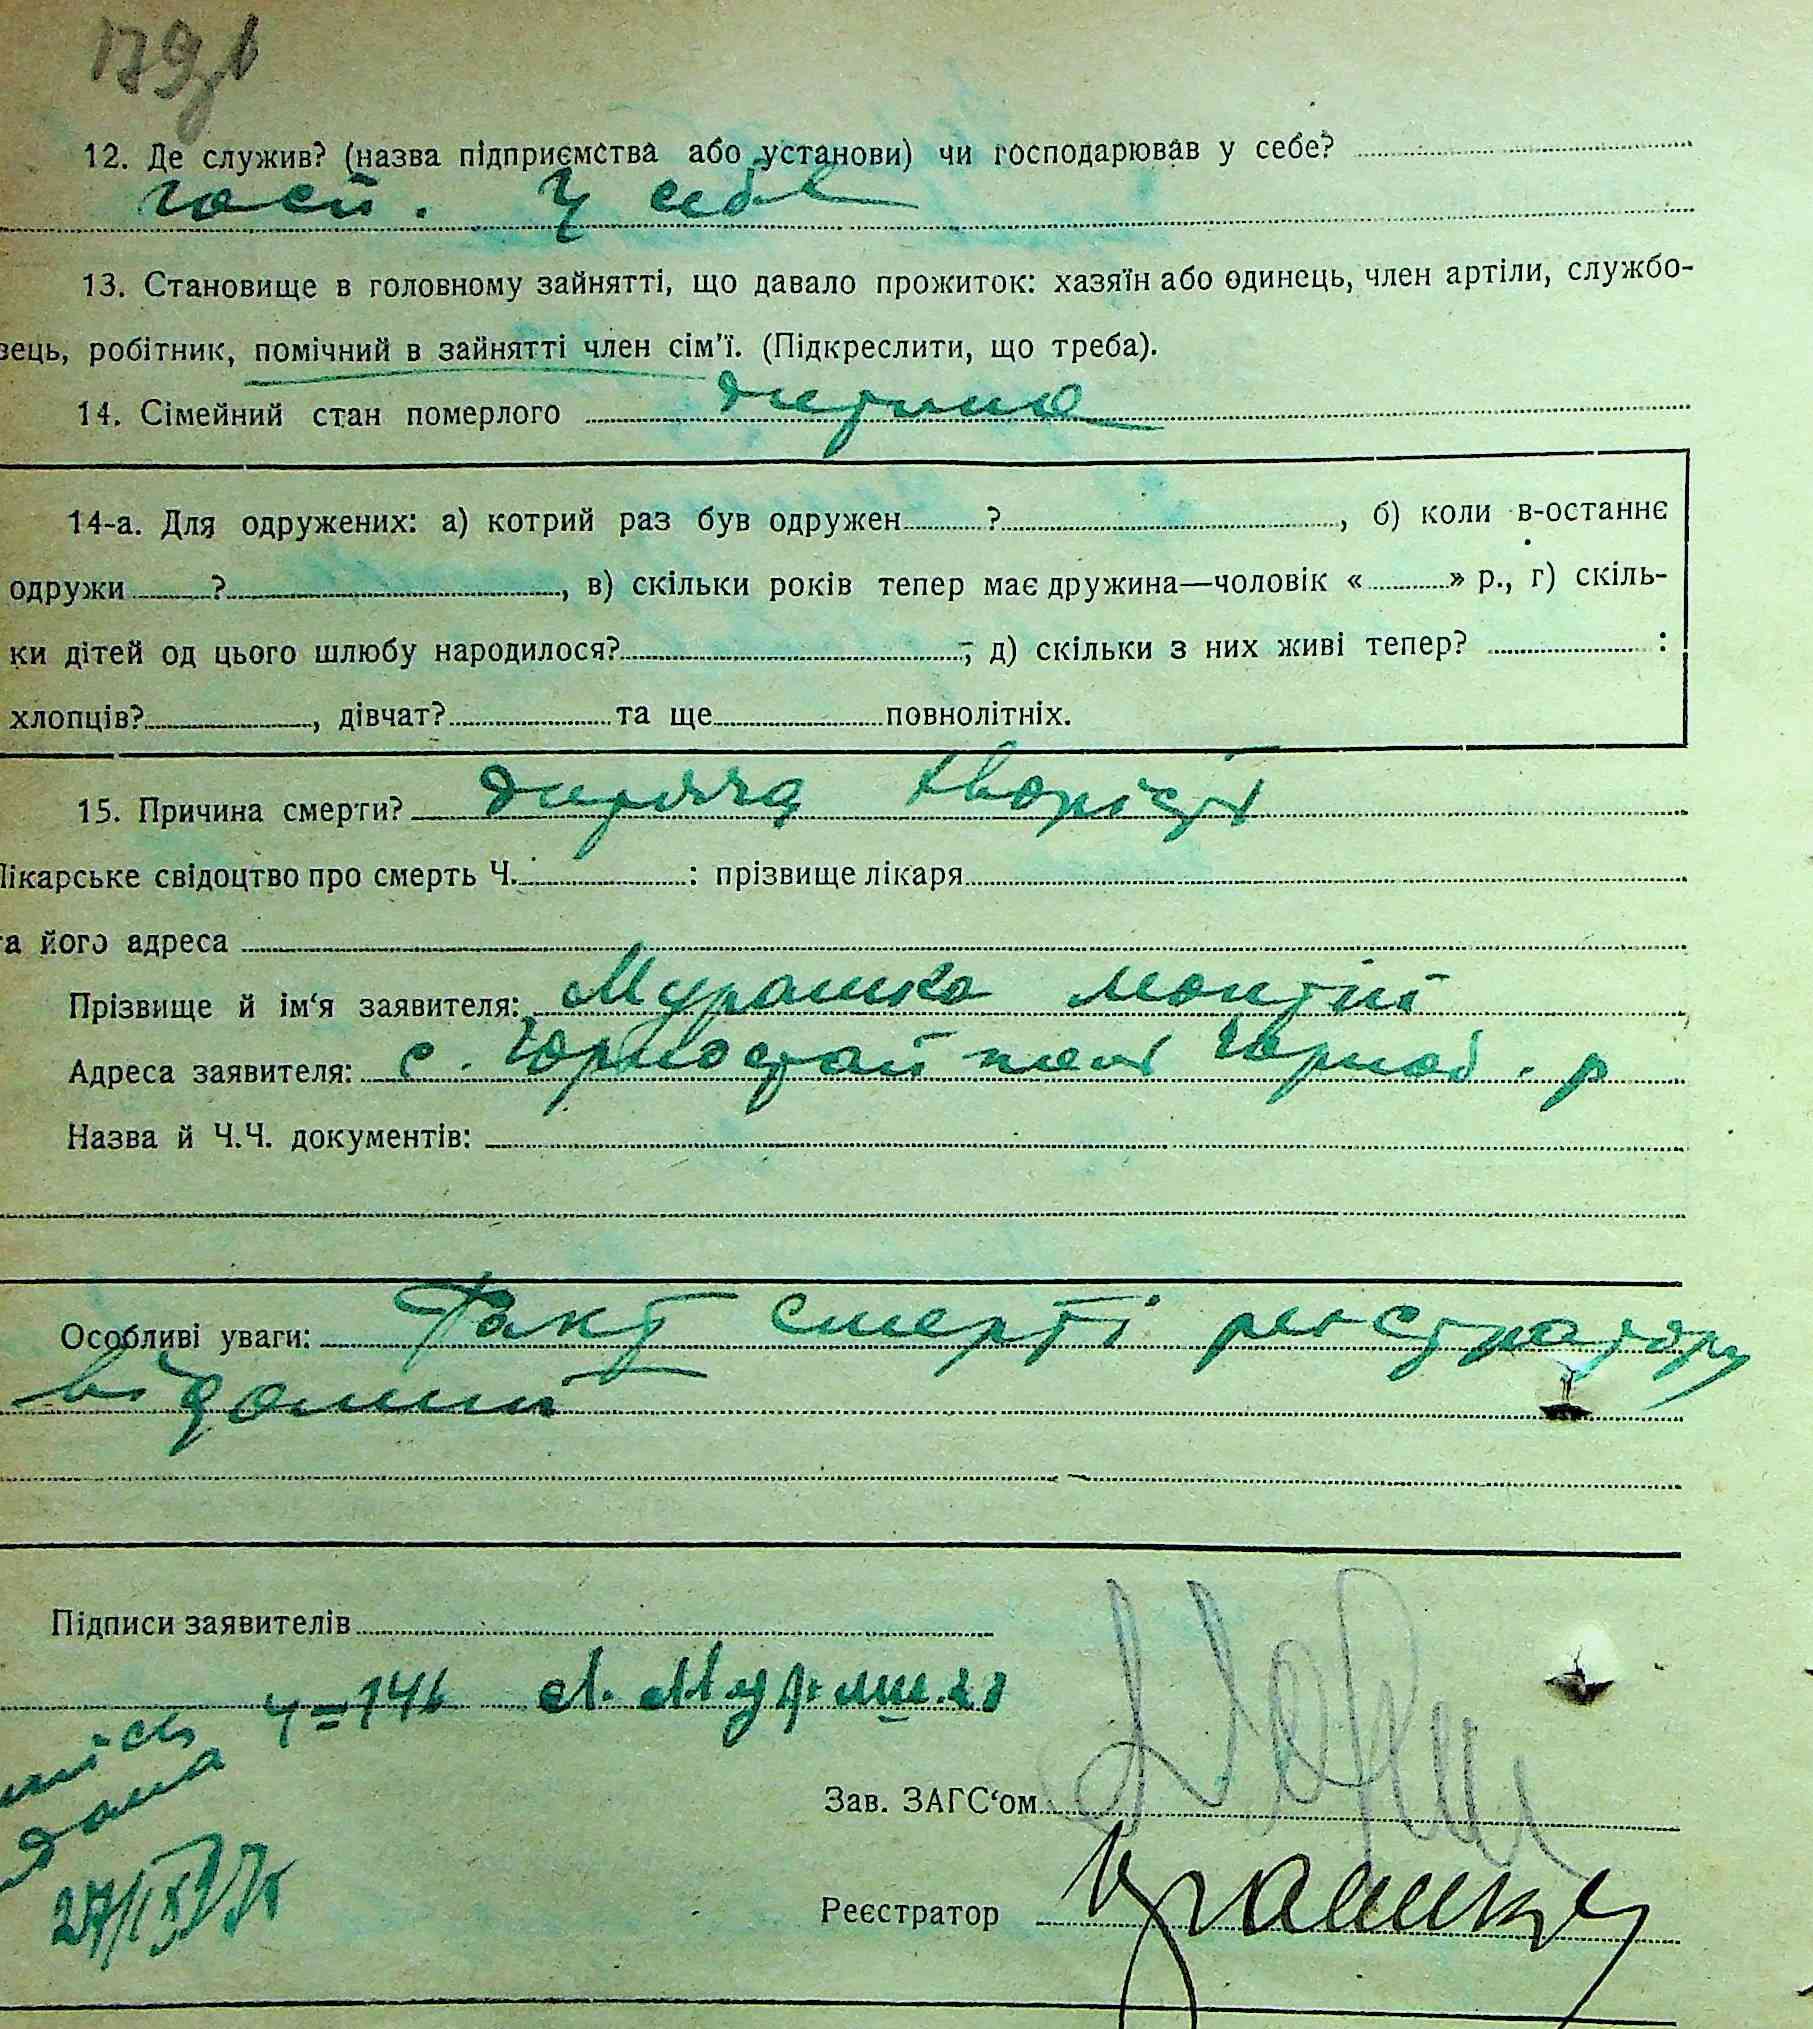 179зв
12. Де служив? (назва підприємства або установи) чи господарював у себе?
госп. у себе
13. Становище в головному зайнятті, що давало прожиток: хазяїн або одинець, член артіли, службо-
вець, робітник, помічний в зайнятті член сім'ї. (Підкреслити, що треба).
14. Сімейний стан померлого дитина
14-а. Для одружених: а) котрий раз був одружен ? , б) коли в-останнє
одружи ? , в) скільки років тепер має дружина—чоловік « » р., г) скіль-
ки дітей од цього шлюбу народилося? ; д) скільки з них живі тепер? :
хлопців? , дівчат? та ще повнолітніх.
15. Причина смерти? дитяча хворість
Лікарське свідоцтво про смерть Ч. : прізвище лікаря
та його адреса
Прізвище й ім'я заявителя: Мурашка
Адреса заявителя: с. Горностайпель Чорноб. р
Назва й Ч.Ч. документів:
Особливі уваги: Факт смерті реєстратору
відомий
Підписи заявителів
Зав. ЗАГС'ом
Реєстратор